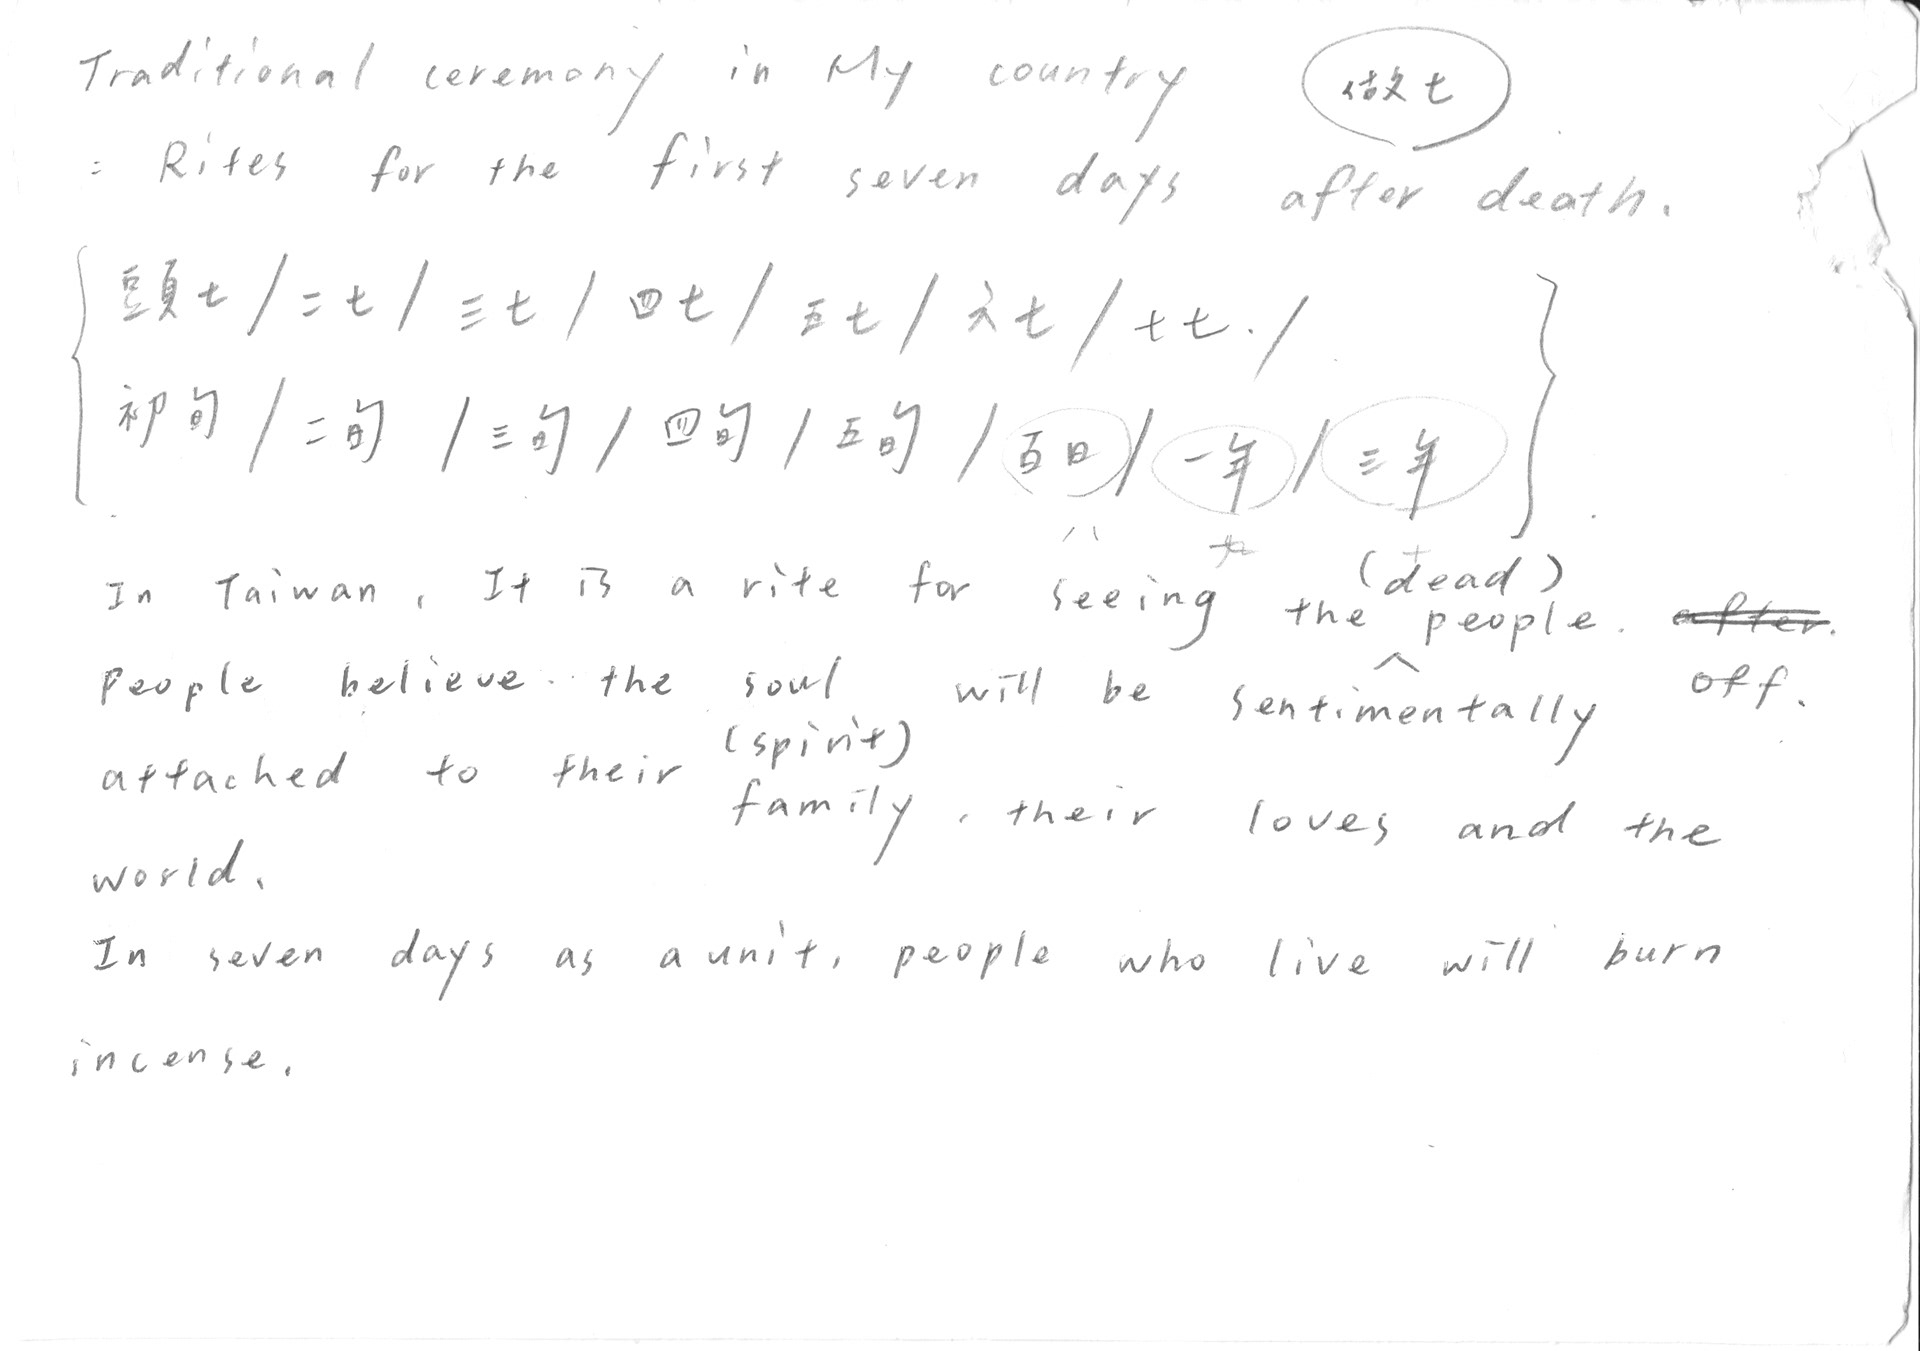 Traditional ceremony in My country 做七
: Rites for the first seven days after death.
頭七 / 二七 / 三七 / 四七 / 五七 / 六七 / 七七. /
初旬 / 二旬 / 三旬 / 四旬 / 五旬 / 百日 / 一年 / 三年
八 九 十
In Taiwan, It is a rite for seeing the (dead) people. after.
off.
People believe the soul will be sentimentally
(spirit)
attached to their family, their loves and the
world.
In seven days as a unit, people who live will burn
incense.